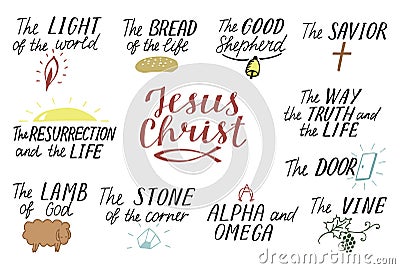 The LIGHT
of the world
The BREAD
of the life
The GOOD
Shepherd
The SAVIOR
The RESURRECTION
and the LIFE
Jesus
Christ
The WAY
the TRUTH and
the LIFE
The DOOR
The LAMB
of God
The STONE
of the corner
ALPHA and
OMEGA
The VINE